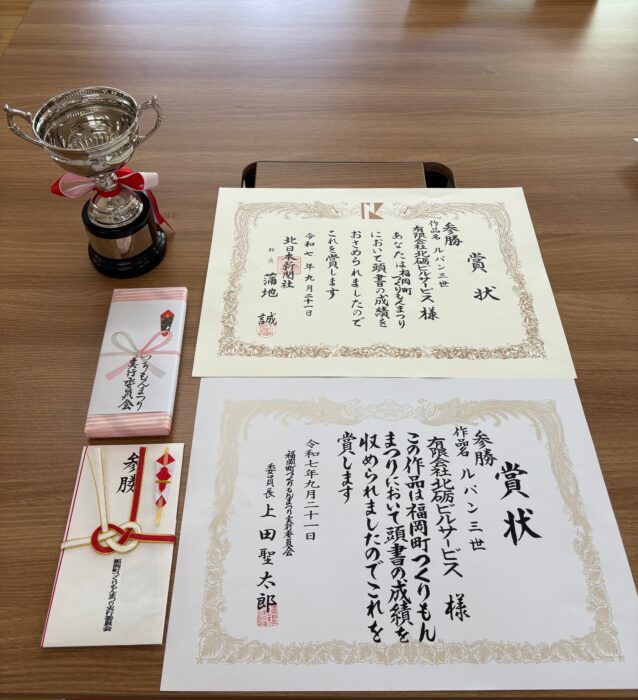 賞状
参勝
作品名 ルパン三世
有限会社北砺ビルサービス 様
あなたは福岡町
つくりもんまつり
において頭書の成績を
おさめられましたので
これを賞します
令和七年九月二十一日
北日本新聞社
社長 蒲地 誠
賞状
参勝
作品名 ルパン三世
有限会社北砺ビルサービス 様
この作品は福岡町つくりもん
まつりにおいて頭書の成績を
収められましたのでこれを
賞します
令和七年九月二十一日
福岡町つくりもんまつり実行委員会
委員長 上田聖太郎
つくりもんまつり
実行委員会
参勝
福岡町つくりもんまつり実行委員会